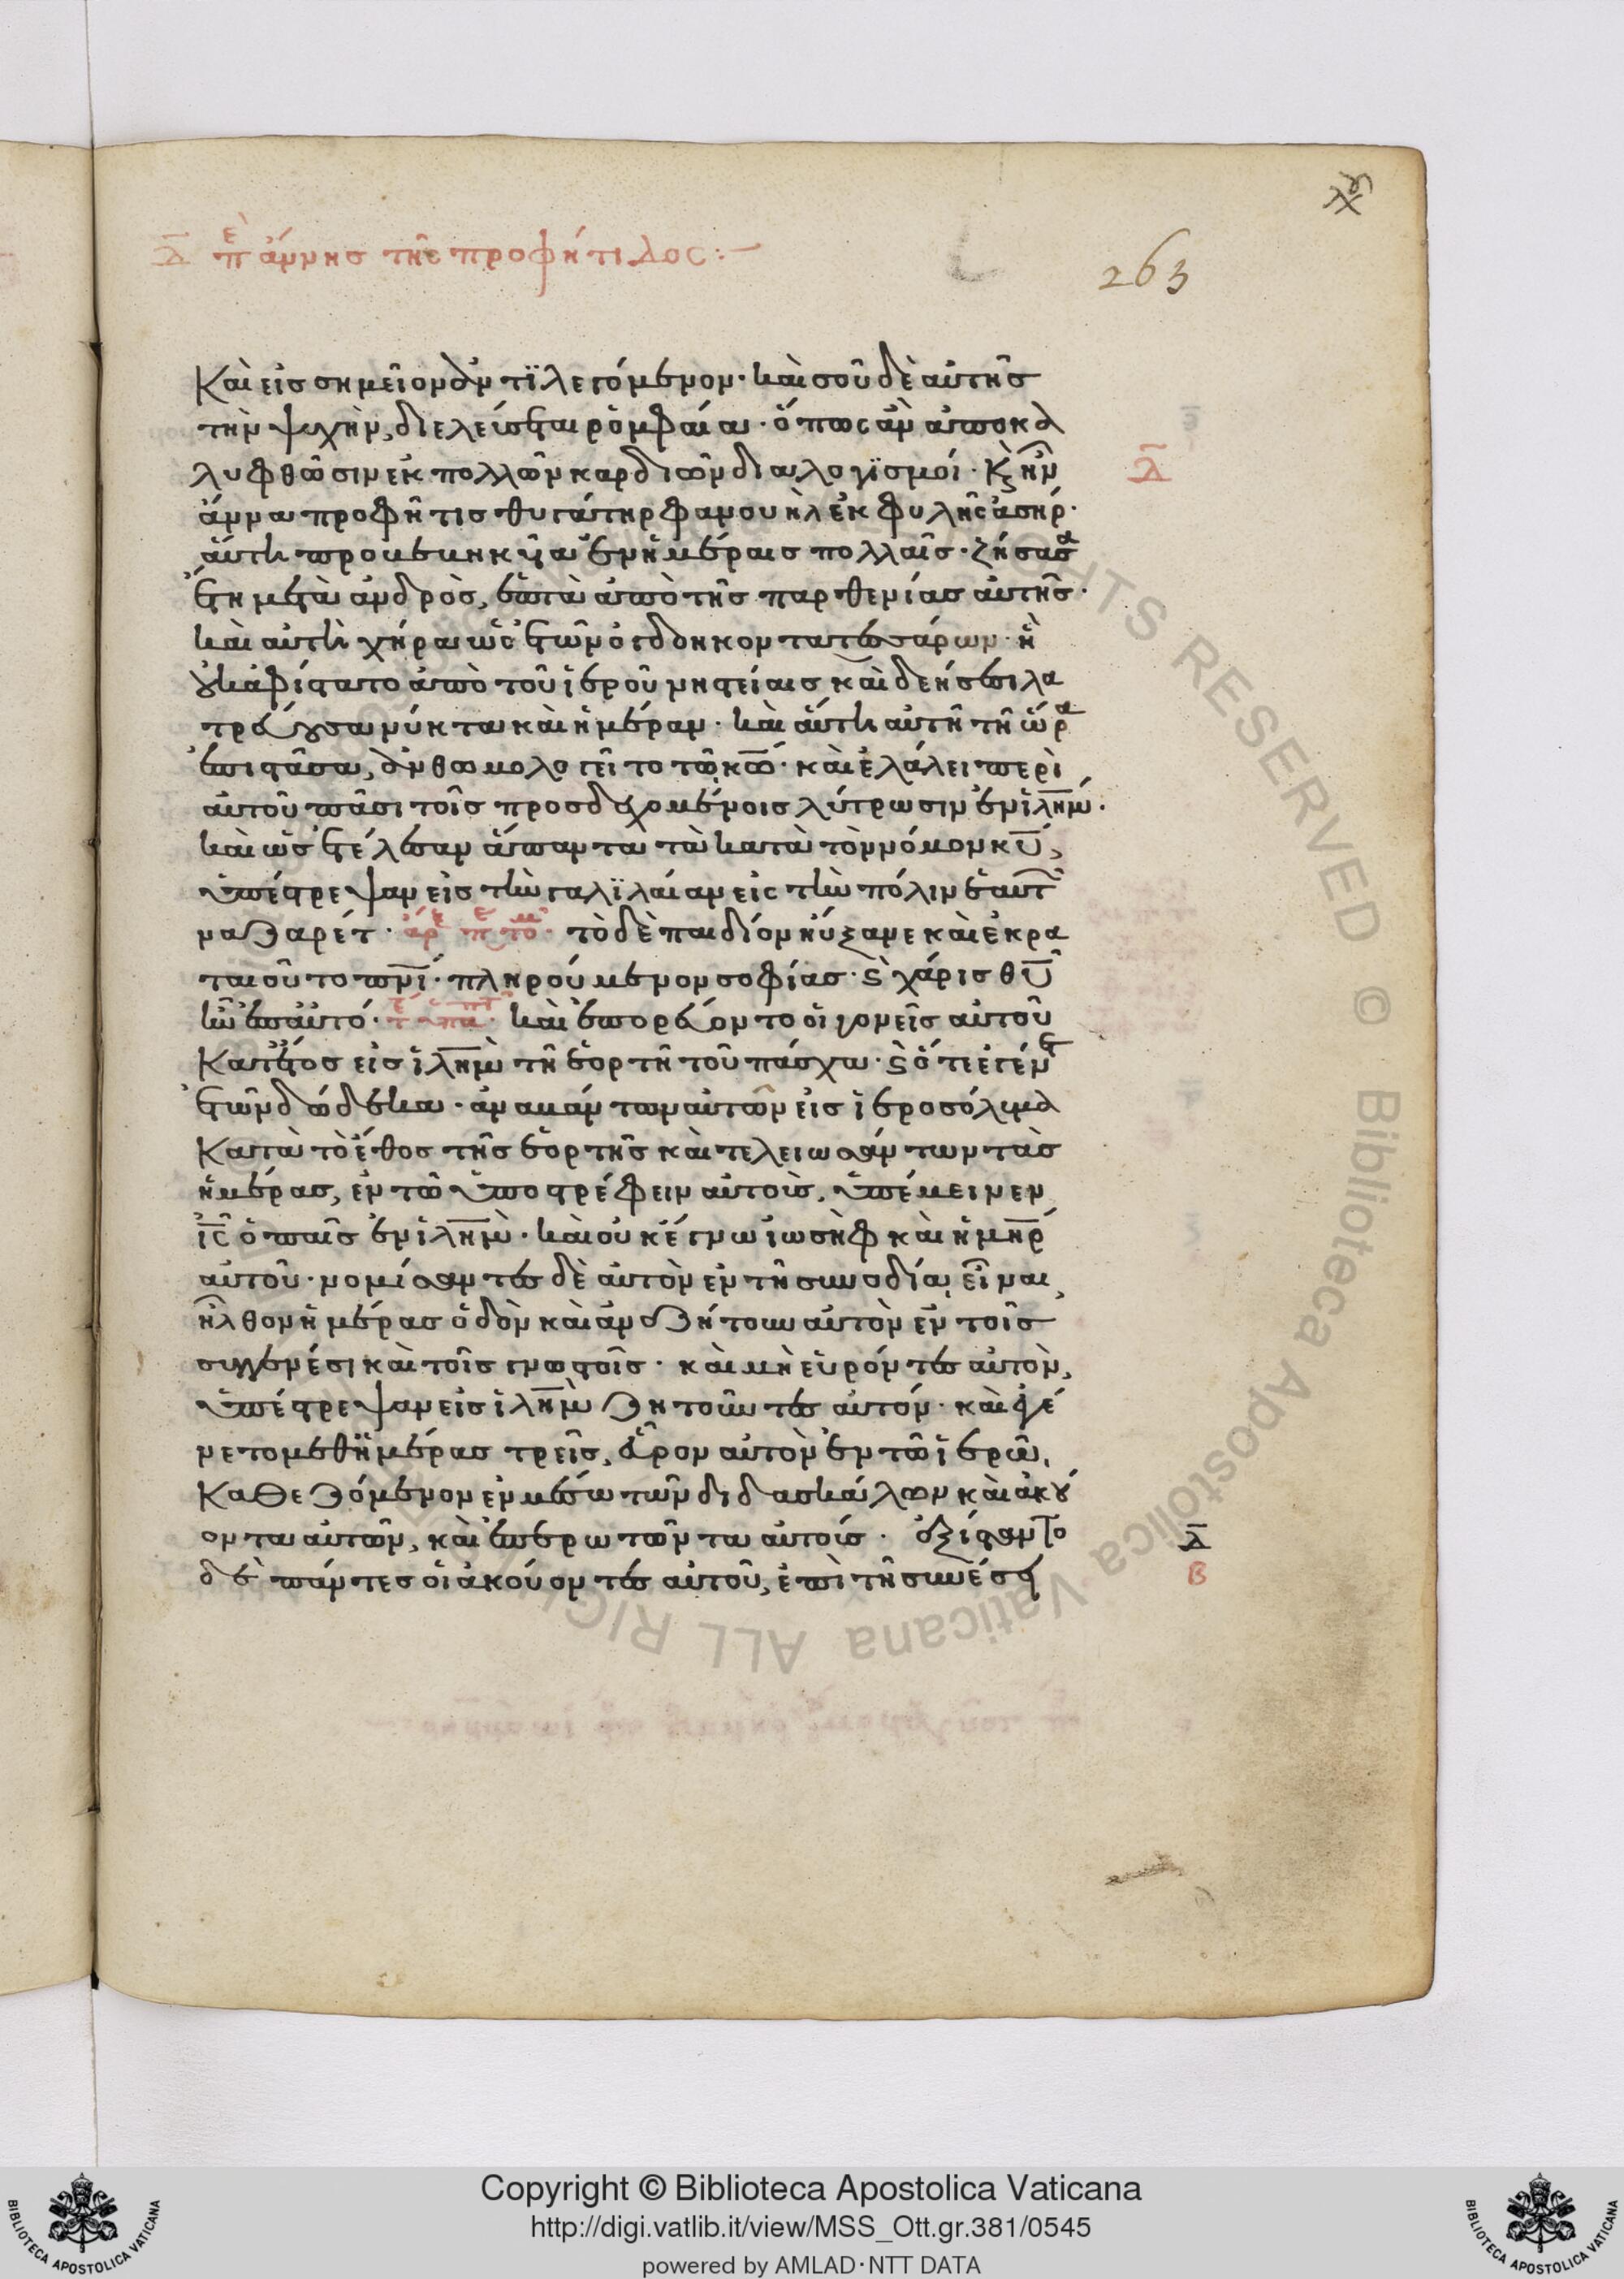 λϛ
Δ̅ πε ἄννης τῆς προφήτιδος:—
263
Καὶ εἰς σημεῖον ἀντϊλεγόμενον· καὶ σοῦ δὲ αὐτῆς
τὴν ψυχὴν, διελεύσεται ῥομφαία· ὅπως ἂν ἀποκα
λυφθῶσιν ἐκ πολλῶν καρδιῶν διαλογϊσμοί· Κ̀ ἦν
Δ̅
ἄννα προφῆτις θυγάτηρ φανουὴλ ἐκ φυλῆς ἀσήρ·
αὕτη προβεβηκυῖα ἐν ἡμέραις πολλαῖς· ζήσασα
ἔτη μετὰ ἀνδρὸς, ἑπτὰ ἀπὸ τῆς παρθενίας αὐτῆς·
καὶ αὐτὴ χήρα ὡς ἐτῶν ὀγδοηκοντατεσσάρων· ἣ
οὐκ ἀφίστατο ἀπὸ τοῦ ἱεροῦ νηστείαις καὶ δεήσεσι λα
τρεύουσα νύκτα καὶ ἡμέραν· καὶ αὕτη αὐτῆ τῆ ὥρα
ἐπιστᾶσα, ἀνθωμολογεῖτο τῶ κ̅ω̅· καὶ ἐλάλει περὶ
αὐτοῦ πᾶσι τοῖς προσδεχομένοις λύτρωσιν ἐν ἱλ̅η̅μ̅·
καὶ ὡς ἐτέλεσαν ἅπαντα τὰ κατὰ τὸν νόμον κ̅υ̅,
ὑπέστρεψαν εἰς τὴν γαλϊλαίαν εἰς τὴν πόλιν ἑαυτῶν
ναζαρέτ· τὸ δὲ παιδίον ηὔξανε καὶ ἐκρα
ταιοῦτο π̅ν̅ι̅· πληρούμενον σοφίας· ϛ̀ χάρις θ̅υ̅
ἦν ἐπ αὐτό· καὶ ἐπορεύοντο οἱ γονεῖς αὐτοῦ
Κατ ἔτος εἰς ἱλ̅η̅μ̅ τῆ ἑορτῆ τοῦ πάσχα· ϛ̀ ὅτι ἐγένετο
ἐτῶν δώδεκα· ἀναβάντων αὐτῶν εἰς ἱεροσόλυμα
Κατὰ τὸ ἔθος τῆς ἑορτῆς καὶ τελειωσάντων τὰς
ἡμέρας, ἐν τῶ ὑποστρέφειν αὐτοὺς, ὑπέμεινεν
ι̅ς̅ ὁ παῖς ἐν ἱλ̅η̅μ̅· καὶ οὐκ ἔγνω ἰωσὴφ καὶ ἡ μ̅η̅ρ̅
αὐτοῦ· νομίσαντες δὲ αὐτὸν ἐν τῆ συνοδία εἶναι,
ἦλθον ἡμέρας ὁδὸν καὶ ἀνεζήτουν αὐτὸν ἐν τοῖς
συγγενέσι καὶ τοῖς γνωστοῖς· καὶ μὴ εὑρόντες αὐτὸν,
ὑπέστρεψαν εἰς ἱλ̅η̅μ̅ ζητοῦντες αὐτόν· καὶ ἐγέ
νετο μεθ ἡμέρας τρεῖς, εὗρον αὐτὸν ἐν τῶ ἱερῶ,
Καθεζόμενον ἐν μέσω τῶν διδασκάλων καὶ ἀκού
οντα αὐτῶν, καὶ ἐπερωτῶντα αὐτούς· ἐξίσταντο
Δ̅
δὲ πάντες οἱ ἀκούοντες αὐτοῦ, ἐπὶ τῆ συνέσει
β
BIBLIOTECA APOSTOLICA VATICANA
Copyright © Biblioteca Apostolica Vaticana
http://digi.vatlib.it/view/MSS_Ott.gr.381/0545
powered by AMLAD·NTT DATA
BIBLIOTECA APOSTOLICA VATICANA
© Biblioteca Apostolica Vaticana ALL RIGHTS RESERVED